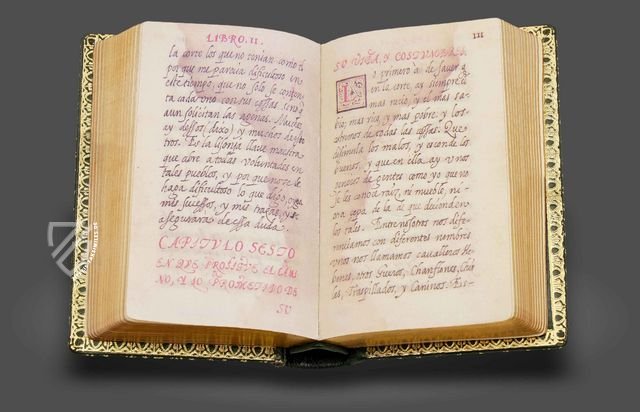 LIBRO. II.
la corte los que no tenian como tu
por que me pareçia dificultoso en
este tiempo, que no solo se conten
ta cada uno con sus cossas sino
aun solicitan las agenas. Muchos
ay dessos (dixo) y muchos desto
tros. Es la lisonja llave maestra
que abre a todas voluntades en
tales pueblos, y por que no se le
haga dificultoso lo que digo, oyga
mis sucessos, y mis trazas, y se
asegurara de essa duda.
CAPITULO SESTO
EN QUE PROSIGUE EL CAMI
NO, Y LO PROMETIDO DE
SU
III
SU VIDA, Y COSTUMBRES.
LO primero a de saver q
en la corte, ay siempre el
mas necio, y el mas sa-
bio; mas rico, y mas pobre; y los es-
tremos de todas las cossas. Que
disimula los malos, y esconde los
buenos, y que en ella ay unos
generos de gentes como yo que no
se les conoce raiz, ni mueble, ni
otra cepa de la de que decienden
los tales. Entre nosotros nos dife-
renciamos con diferentes nombres
unos nos llamamos cavalleros He-
benes, otros Gueros, Chanflones, Chir
las, Traspillados, y Caninos. Es-